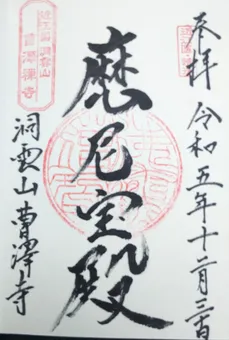 奉拝 令和五年十二月三日
摩尼宝殿
洞雲山
曹澤禅寺
洞雲山 曹澤寺